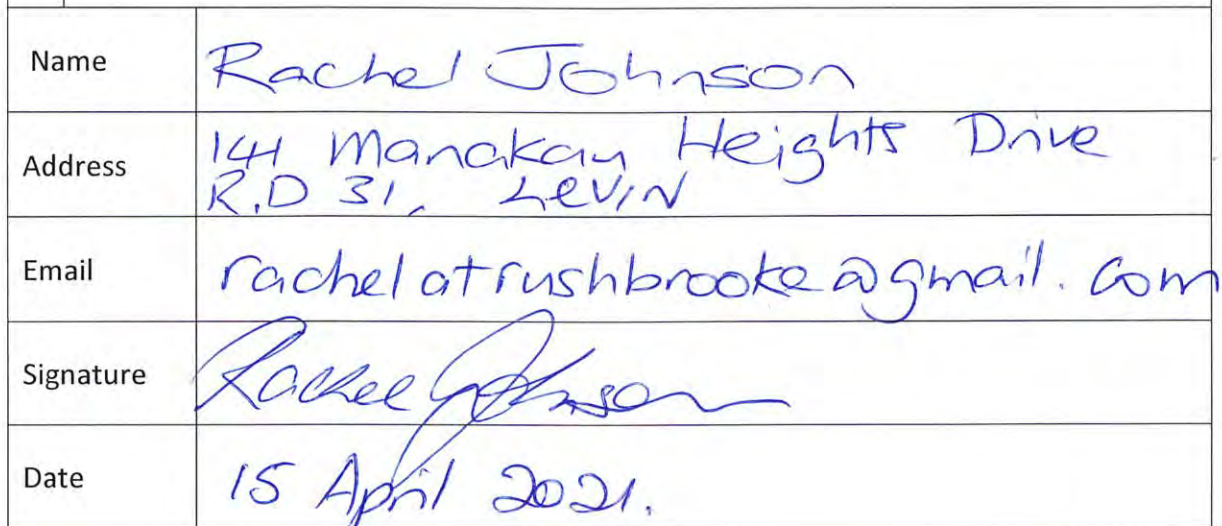 Name Rachel Johnson
Address 141 Manakau Heights Drive
R.D 31, LEVIN
Email rachelatrushbrooke@gmail.com
Signature Rachel Johnson
Date 15 April 2021.